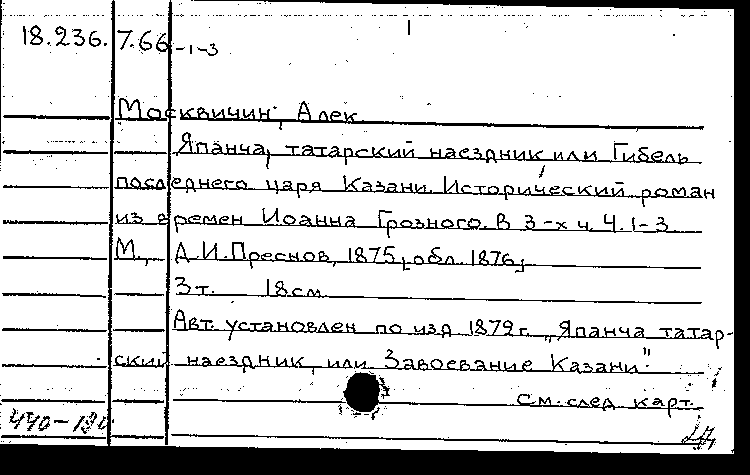 18.236.7.66-1-3
Москвичин, Алек
Япанча, татарский наездник, или Гибель
последнего царя Казани. Исторический роман
из времен Иоанна Грозного. В 3-х ч. Ч. 1-3
М., А.И.Преснов, 1875, обл. 1876,
3 т. 18 см
Авт. установлен по изд 1879 г. „Япанча татар-
ский наездник, или Завоевание Казани".
См. след карт.